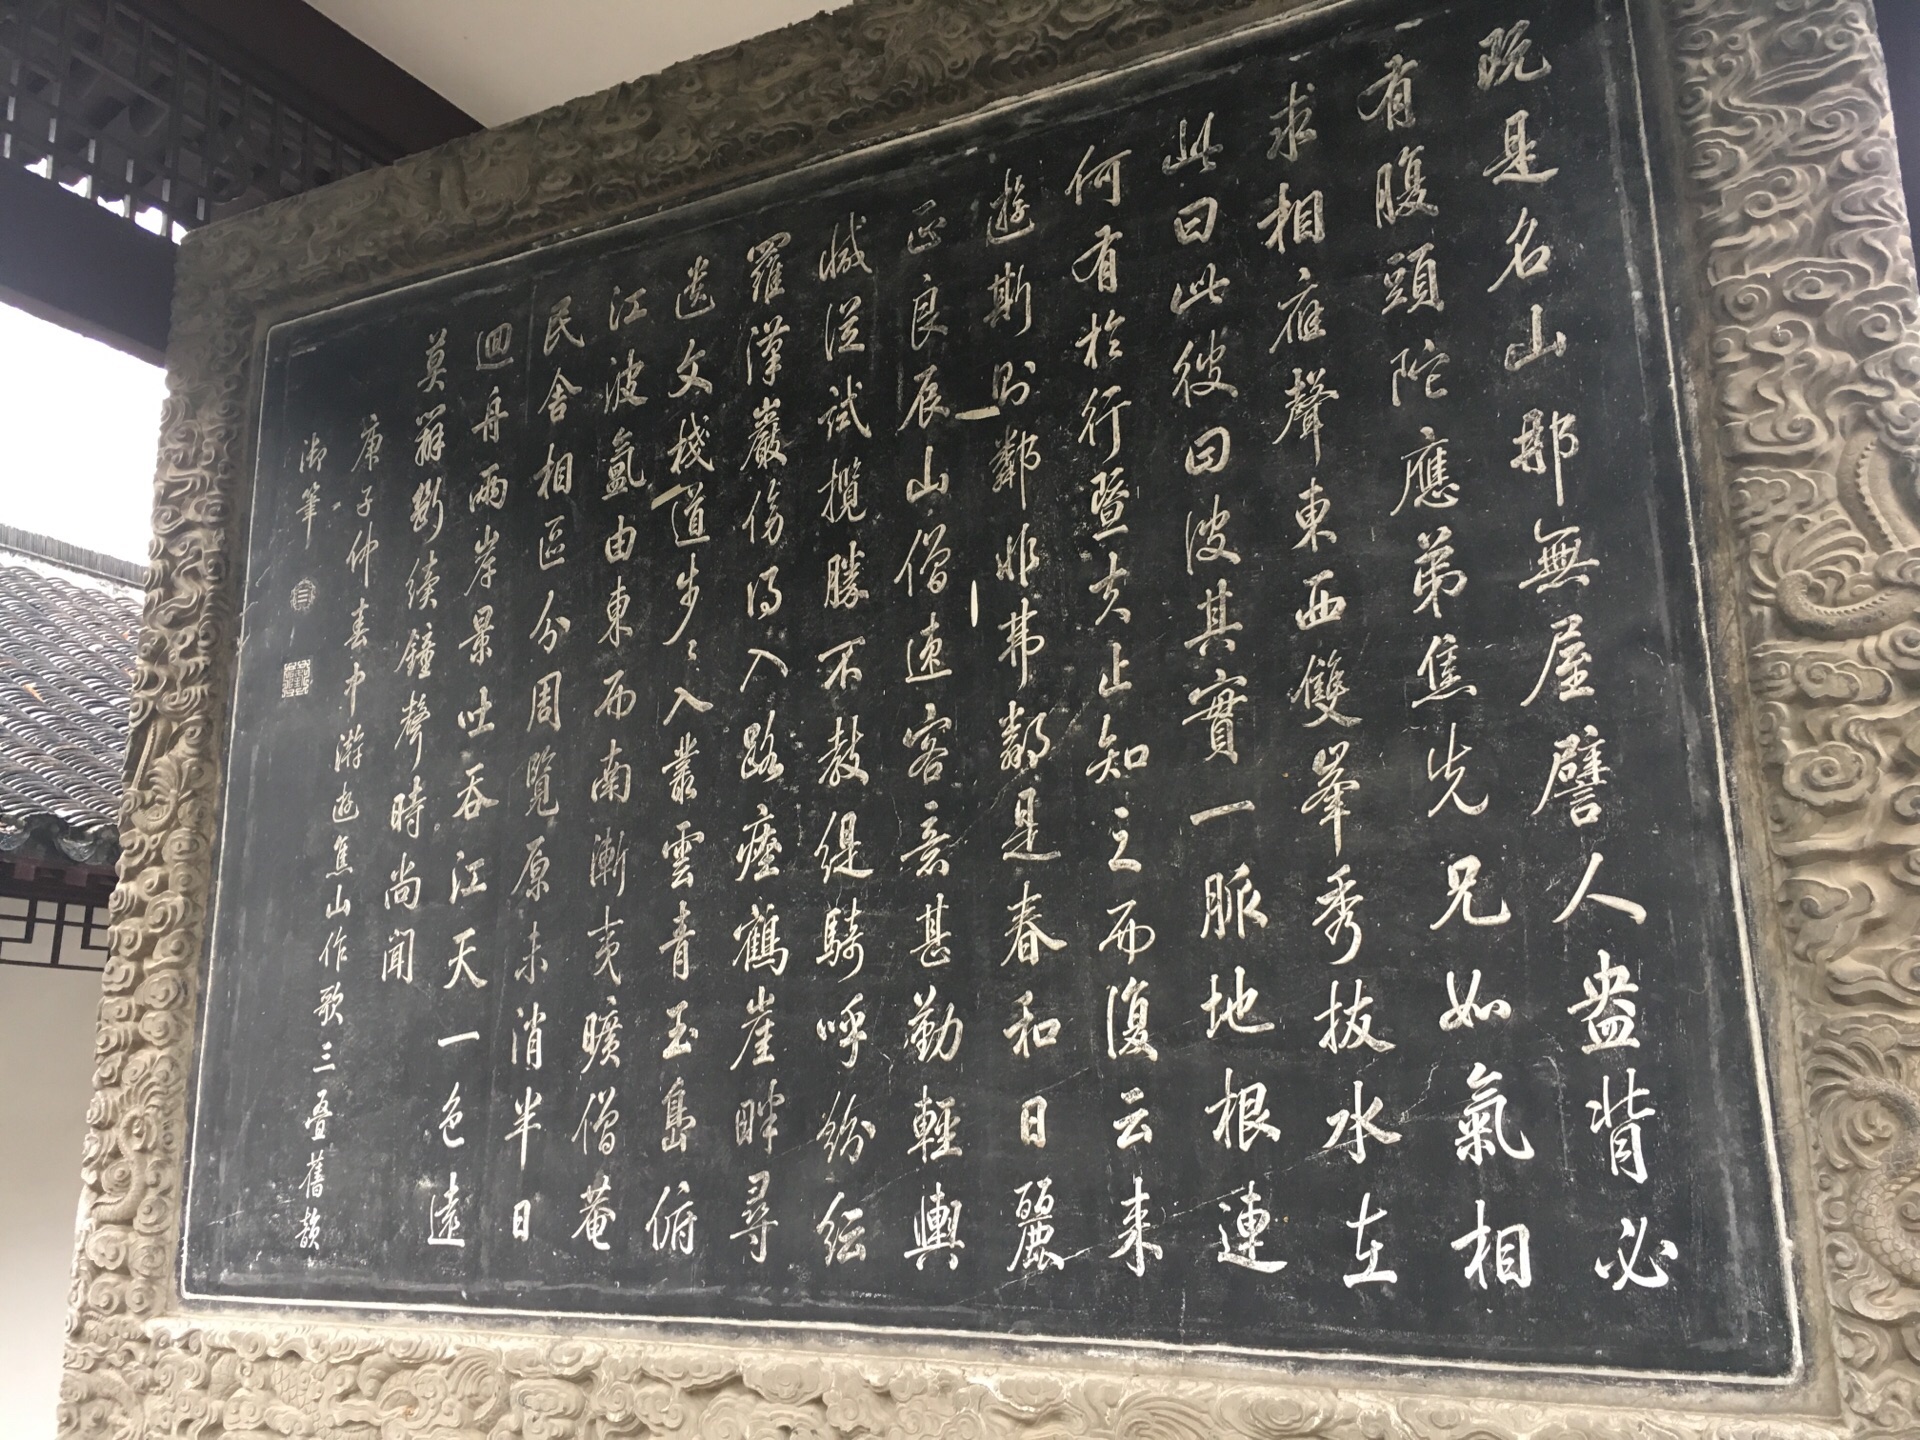 既是名山那無屋譬人盎背必
有腹頭陀應弟焦先兄如氣相
求相應聲東西雙峯秀拔水在
此曰此彼曰彼其實一脈地根連
何有於行暨夫止知之而復云来
遊斯則鄰非弗鄰是春和日麗
正良辰山僧速客意甚勤輕輿
減從試攬勝不教緹騎呼紛紜
羅漢巖傍得入路瘞鶴崖畔尋
遺文棧道步々入叢雲青玉島俯
江波氳由東而南漸夷曠僧菴
民舍相區分周覽原未消半日
迴舟兩岸景吐吞江天一色遠
莫辨斷續鐘聲時尚聞
庚子仲春中澣遊焦山作歌三疊舊韻
御筆